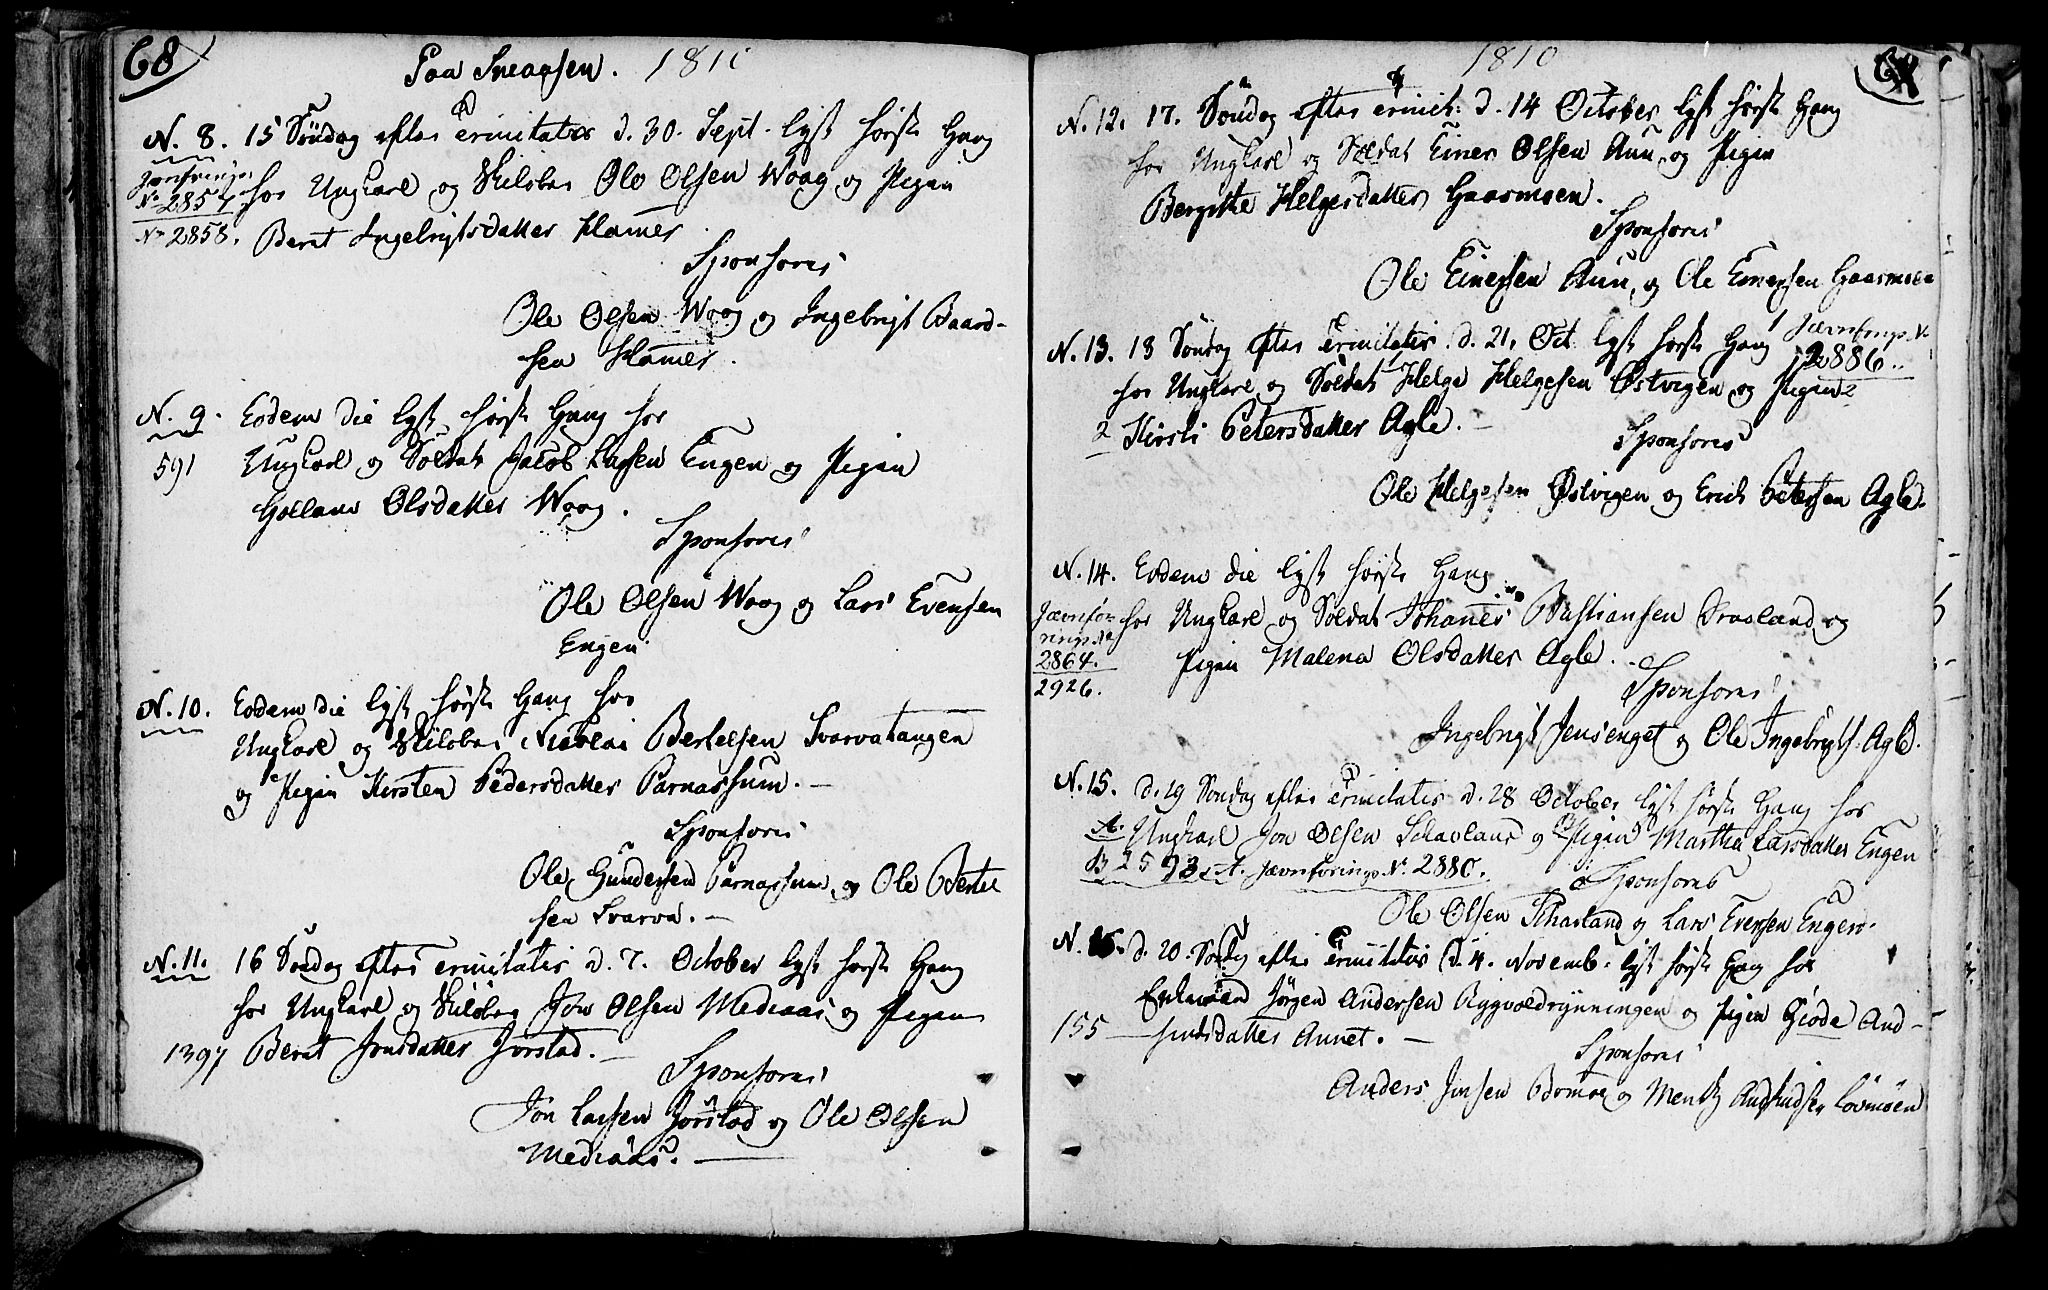 68
Paa Sneaasen. 1810
N. 8. 15 Søndag efter Trinitatis d. 30. Sept. lyst første Gang
Jævnførings
No 2857. for Ungkarl og Skiløber Ole Olsen Woog og Pigen
No 2858. Beret Ingebrigtsdatter Hamer
Sponsores
Ole Olsen Woog og Ingebrigt Baard-
sen Hamer.
N. 9. Eodem die lyst første Gang for
591 Ungkarl og Soldat Jacob Larsen Engen og Pigen
Gollaug Olsdatter Woog.
Sponsores
Ole Olsen Woog og Lars Evensen
Engen
N. 10. Eodem die lyst første Gang for
Ungkarl og Skiløber Nicolai Bertelsen Svarvatangen
og Pigen Kirsten Pedersdatter Parnassum. —
Sponsores
Ole Gundersen Parnassum og Ole Bertel
sen Svarva. —
N. 11. 16 Søndag efter Trinitatis d. 7. October lyst første Gang
for Ungkarl og Skiløber Jon Olsen Mediaas og Pigen
1397 Beret Jonsdatter Jørstad. —
Sponsores
Jon Larsen Jørstad og Ole Olsen
Mediaas. —
1810
N. 12. 17. Søndag efter Trinit: d. 14 October lyst første Gang
for Ungkarl og Soldat Einer Olsen Aun og Pigen
Bergitte Helgesdatter Gaasmoen.
Sponsores
Ole Einersen Aun, og Ole Einersen Gaasmoen
N. 13. 18 Søndag efter Trinitatis d. 21. Oct lyst første Gang Jævnførings N.
2886.
for Ungkarl og Soldat Helge Helgesen Østvigen og Pigen
2 Kirsti Petersdatter Agle. —
Sponsores
Ole Helgesen Østvigen og Erich Petersen Agle.
N. 14. Eodem die lyst første Gang
Jævnfø- for Ungkarl og Soldat Johanes Bastiansen Snasland og
rings No
2864. Pigen Malena Olsdatter Agle.
2926.
Sponsores
Ingebrigt Jensenget og Ole Ingebrigts. Agle.
N. 15. d. 19 Søndag efter Trinitatis d. 28 October lyst første Gang for
A. Ungkarl Jon Olsen Schavland og Pigen Martha Larsdatter Engen
B 2593. A. Jævnførings N. 2880.
Sponsores
Ole Olsen Schavland og Lars Evensen Engen.
N. 16. d. 20. Søndag efter Trinitatis d. 4. Novemb. lyst første Gang for
Enkemand Jørgen Andersen Rygvoldrynningen og Pigen Gioda And-
155 — Aunet. —
Sponsores
Anders Jonsen Bomoe og Mentz Lovmoen